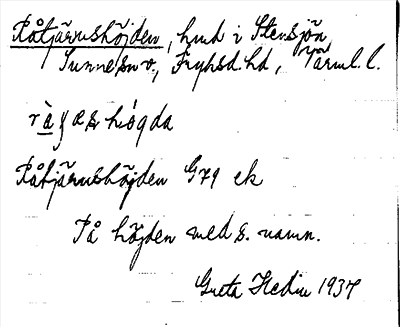 Råtjärnshöjden, hmd i Stensjön
Sunne sn o, Fryksd. hd, Värml. l.
Råtjärnshöjden G79 ek
På höjden med s. namn.
Greta Hedin 1937